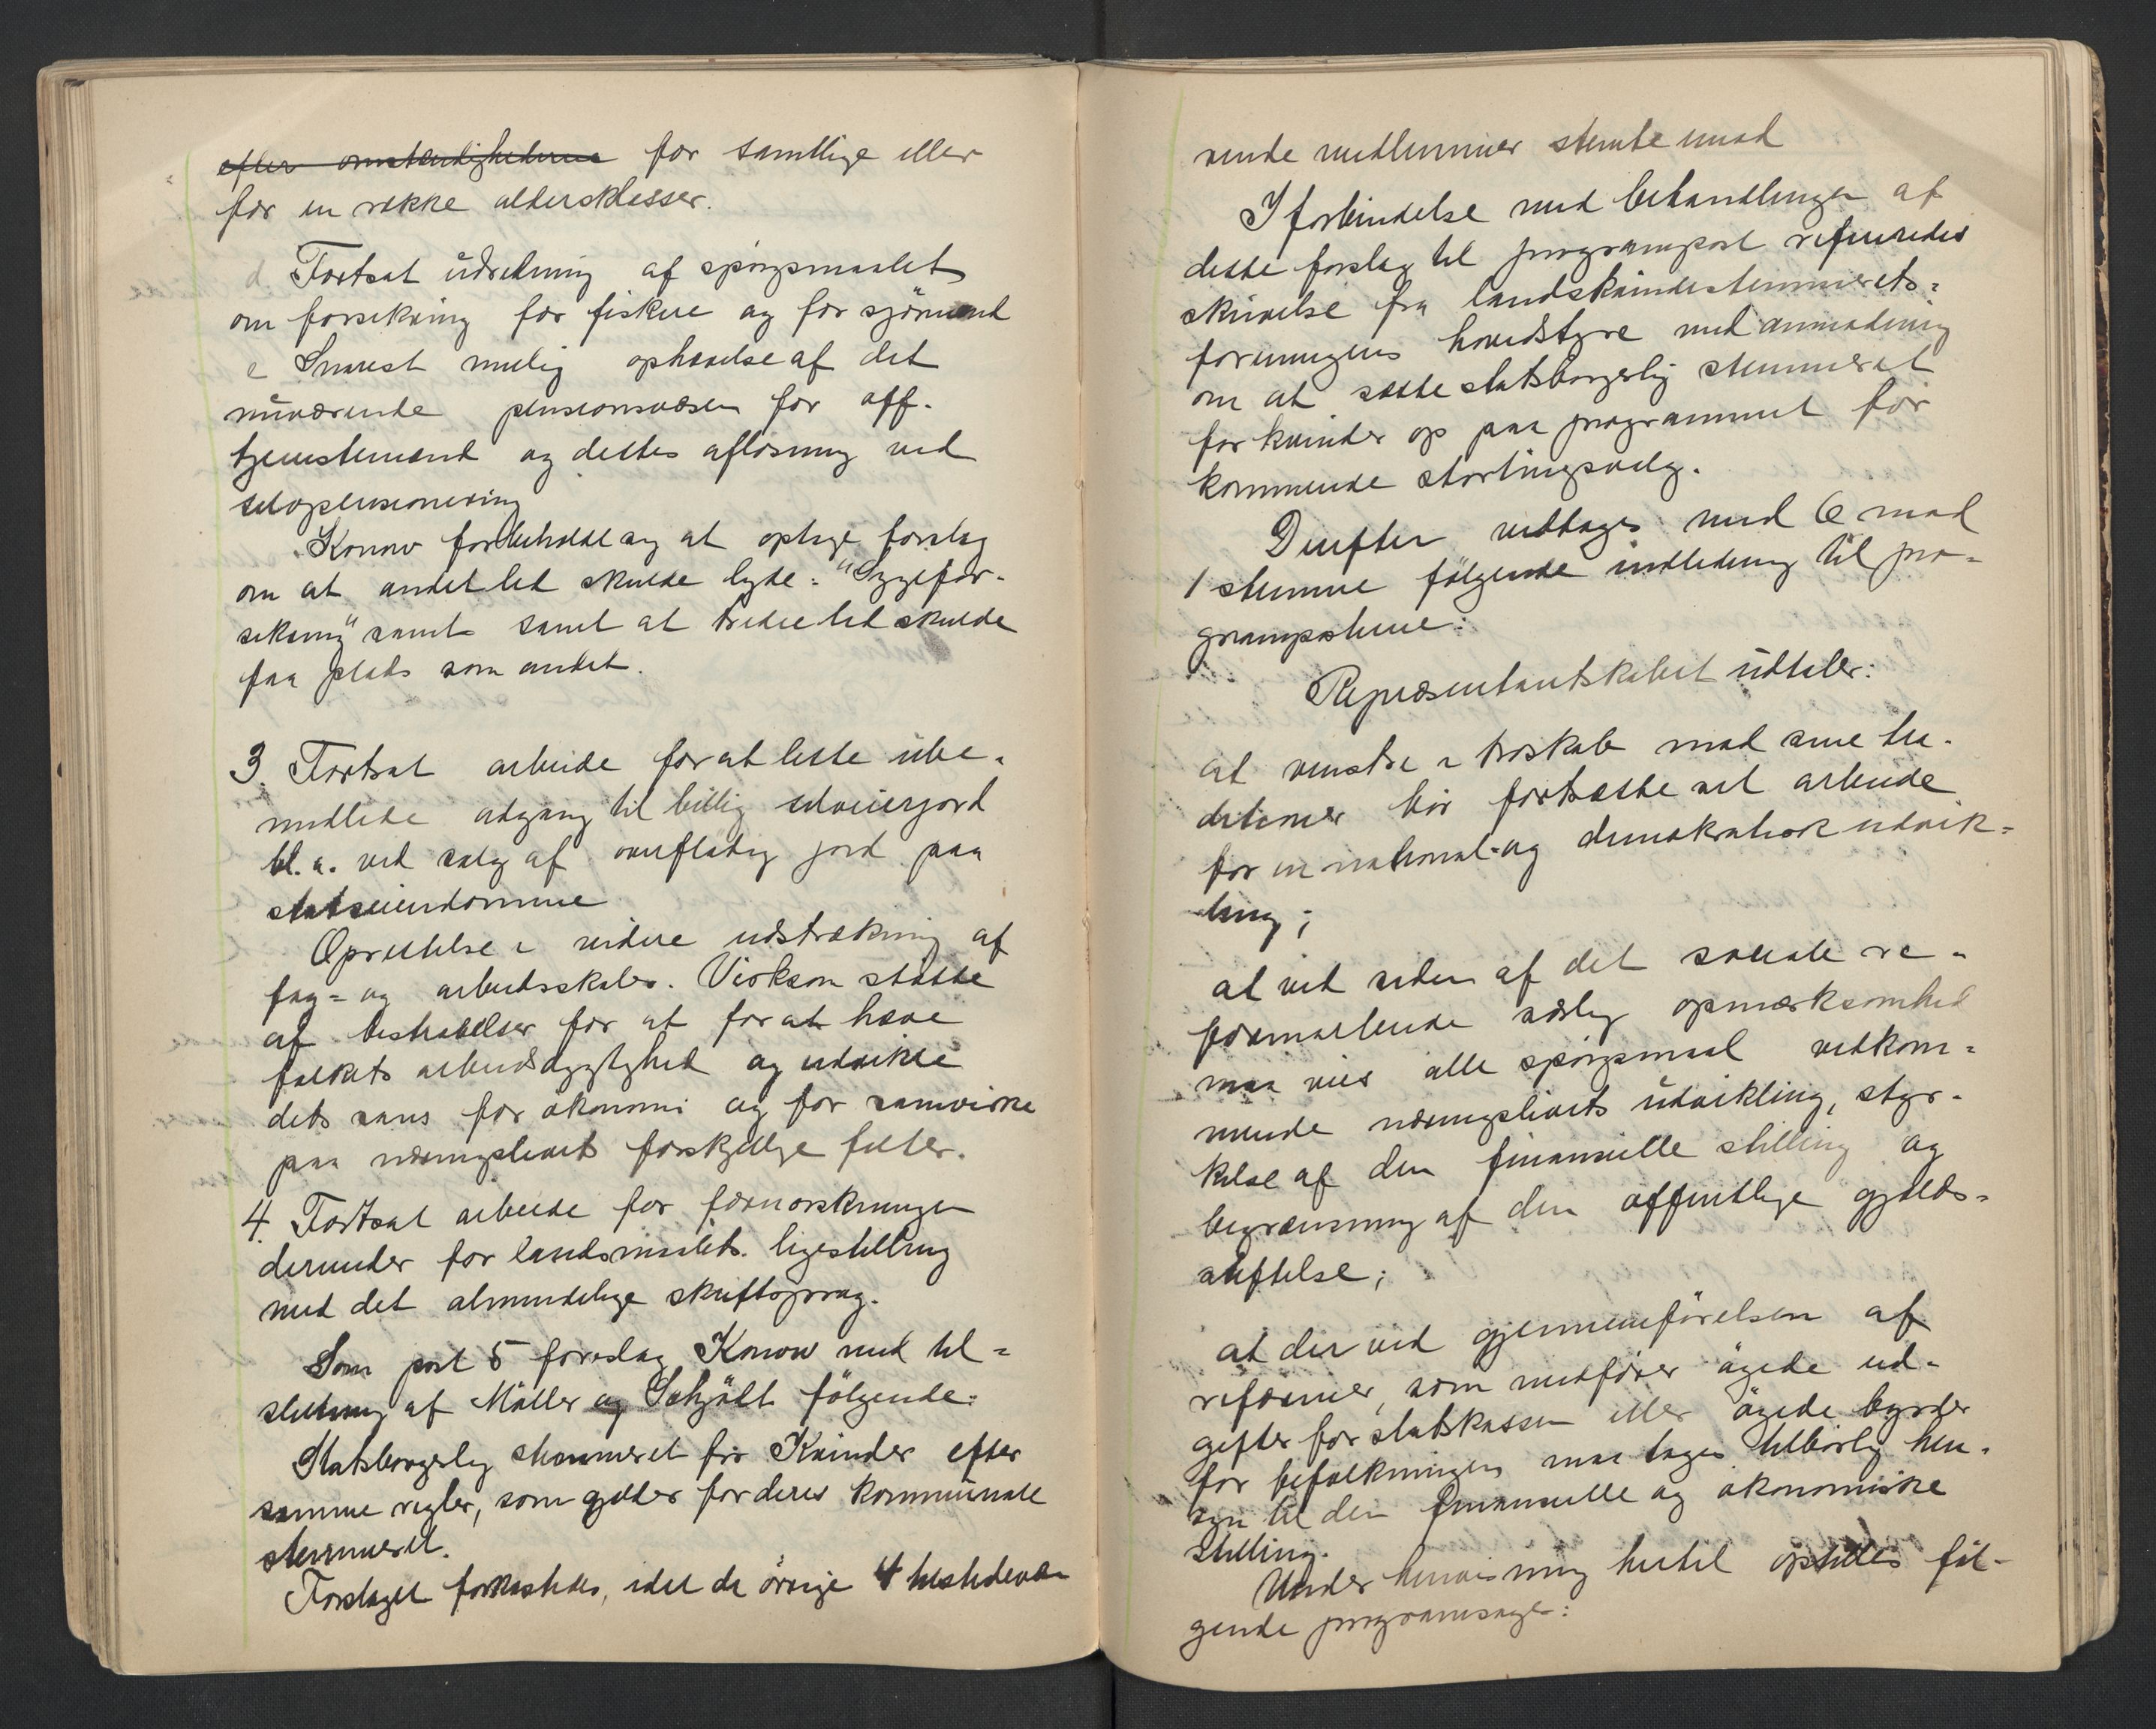 efter omstændighederne for samtlige eller
for en række aldersklasser.
d Fortsat üdredning af spörgsmaalet
om forsikring for fiskere og for sjömænd
e Snarest mulig ophævelse af det
nüværende pensionsvæsen for off.
tjenestemænd og dettes aflösning ved
selvpensionering
Konow forbeholdt sig at optage forslag
om at andet led skulde lyde: "Sygefor-
sikring" samt samt at tredie led skulde
faa plads som andet.
3. Fortsat arbeide for at lette ube-
midlede adgang til billig selveierjord
bl. a. ved salg af overflödig jord paa
statseiendomme
Oprettelse i videre udstrækning af
fag- og arbeidsskoler. Virksom stötte
af bestræbelser for at for at hæve
folkets arbeidsdygtighed og udvikle
dets sans for ökonomi og for samvirke
paa næringslivets forskjellige felter.
4. Fortsat arbeide for fornorskningen
derunder for landsmaalets ligestilling
med det almindelige skriftsprog.
Som post 5 foreslog Konow med til-
slutning af Möller og Schjölt fölgende:
Statsborgerlig stemmeret for Kvinder efter
samme regler, som gjælder for deres kommünale
stemmeret.
Forslaget forkastedes, idet de övrige 4 tilstedevæ
rende medlemmer stemte imod
I forbindelse med behandlingen af
dette forslag til programpost refereredes
skrivelse fra landskvindestemmerets-
foreningens hovedstyre med anmodning
om at sætte statsborgerlig stemmeret
for kvinder op paa programmet for
kommende stortingsvalg.
Derefter vedtoges med 6 mod
1 stemme fölgende indledning til pro-
gramposterne:
Repræsentantskabet üdtaler:
at venstre i troskab mod sine tra-
ditioner bör fortsætte sit arbeide
for en national og demokratisk udvik-
ling;
at ved siden af det sociale re-
formarbeide særlig opmærksomhed
maa vies alle spörgsmaal vedkom-
mende næringslivets üdvikling, styr-
kelse af den finansielle stilling og
begrænsning af den offentlige gjælds-
stiftelse;
at der ved gjennemförelsen af
reformer, som medförer ögede ud-
gifter for statskassen eller ögede byrder
for befolkningen maa tages tilbörlig hen-
syn til den finansielle og ökonomiske
Stilling.
Under henvisning hertil opstilles föl-
gende programsager: